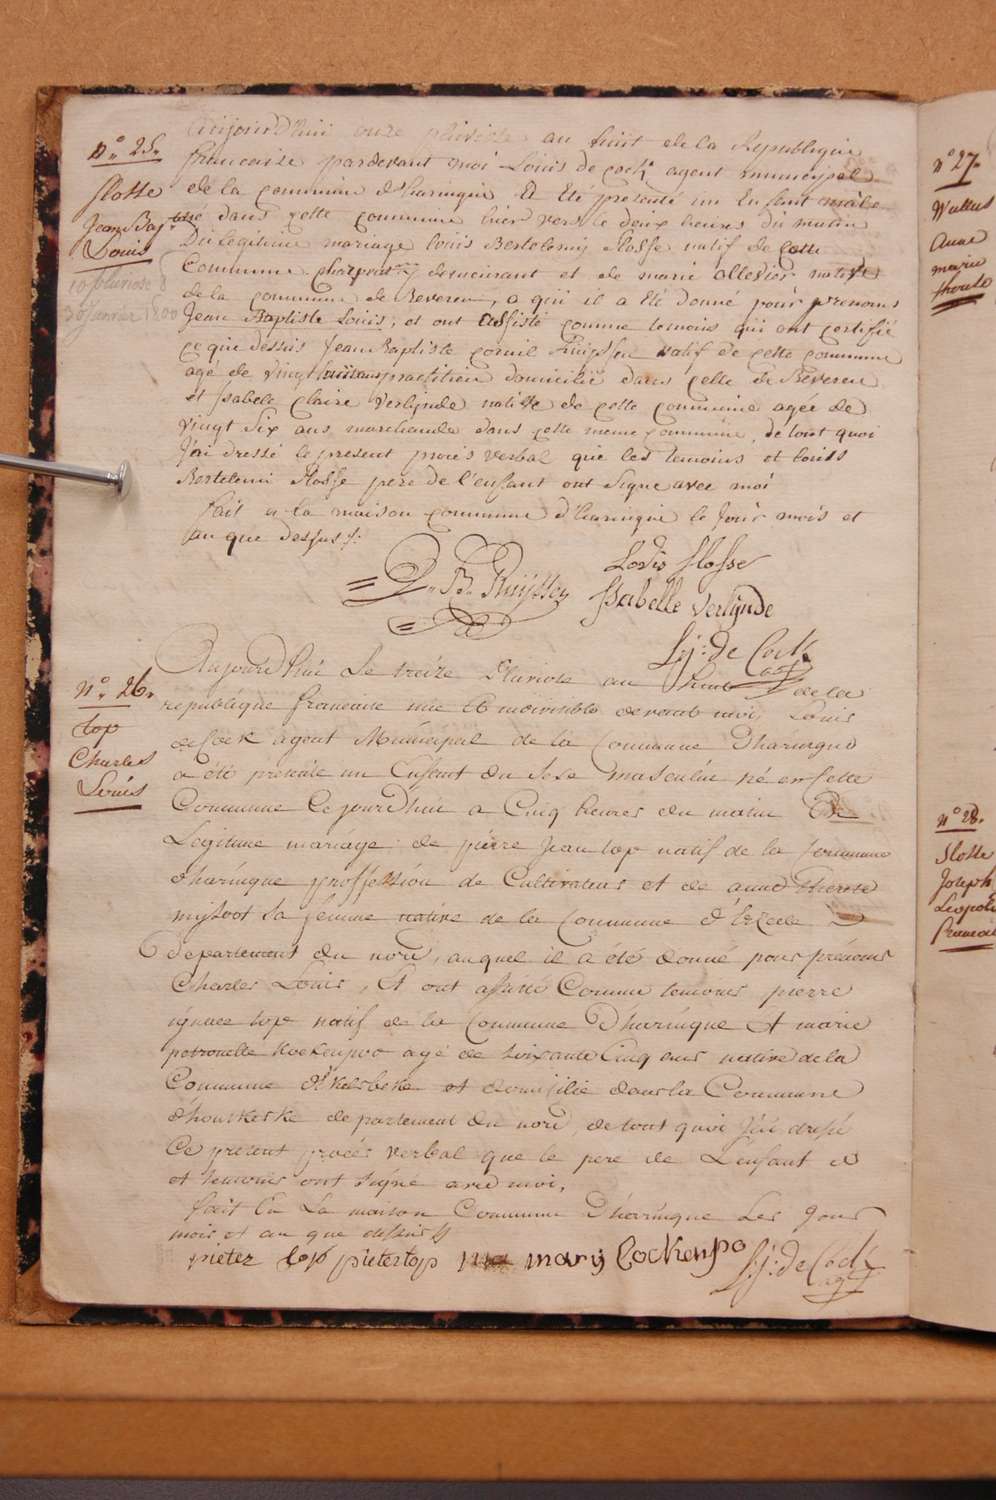 N.° 25.
Slosse
Jean Bap.te
Louis
10 pluviose 8
30 Janvier 1800
Aujourd'hui onze pluviose au huit de la Republique
francaise pardevant moi Louis de Cock agent municipal
de la commune d'haringue Et Eté presenté un Enfant male
né dans cette commune hier vers le deux heures du matin
Du legitime mariage Louis Bertelemij Slosse natif de Cette
Commune demeurant et de marie natife
de la commune de Beveren, a qui il a été donné pour prenoms
Jean Baptiste Louis, et ont assisté comme temoins qui ont certifié
ce que dessus Jean Baptiste natif de cette commune
agé de vingt huit ans practitien domicilié dans celle de Beveren
et Isabele Claire Verlijnde native de cette commune agée de
vingt six ans marchande dans cette meme commune, de tout quoi
J'ai dressé le present procés verbal que les temoins et louis
Bertelemi Slosse pere de l'enfant ont Signe avec moi
fait a la maison commune d'haringue le Jour mois et
an que dessus /:
Lovis Slosse
Isabelle verlijnde
L.j: de Cock
agt
N.° 26.
top
Charles
Louis
Aujourd'hui Le treize Pluviose au huit de la
republique francaise une et indivisible devant moi Louis
de Cock agent Municipal de la Commune D'haringue
a été presente un Enfant du Sexe masculin né en Cette
Commune Ce jourd'hui a Cinq heures du matin De
Legitime mariage de pierre Jean top natif de la Commune
d'haringue proffession de Cultivateurs et de anne Therese
sa femme native de la Commune d'Erzeele
departement du nord, auquel il a été donné pour prénoms
Charles Louis, Et ont assisté Comme temoins pierre
ignace top natif de la Commune D'haringue Et marie
petronelle Kockenpoo agé de soixante Cinq ans native de la
Commune et domicilie dans la Commune
d'houtkerke departement du nord, de tout quoi J'ai dressé
Ce present procés verbal que le pere de L'enfant et
et temoins ont signé avec moi,
fait En La maison Commune D'haringue Les Jour
mois et an que dessus
pieter top pieter top mary Cockenpo
L.j: de Cock
agt
N.° 27.
Anne
marie
N.° 28.
Slosse
Joseph
Leopol
francoi